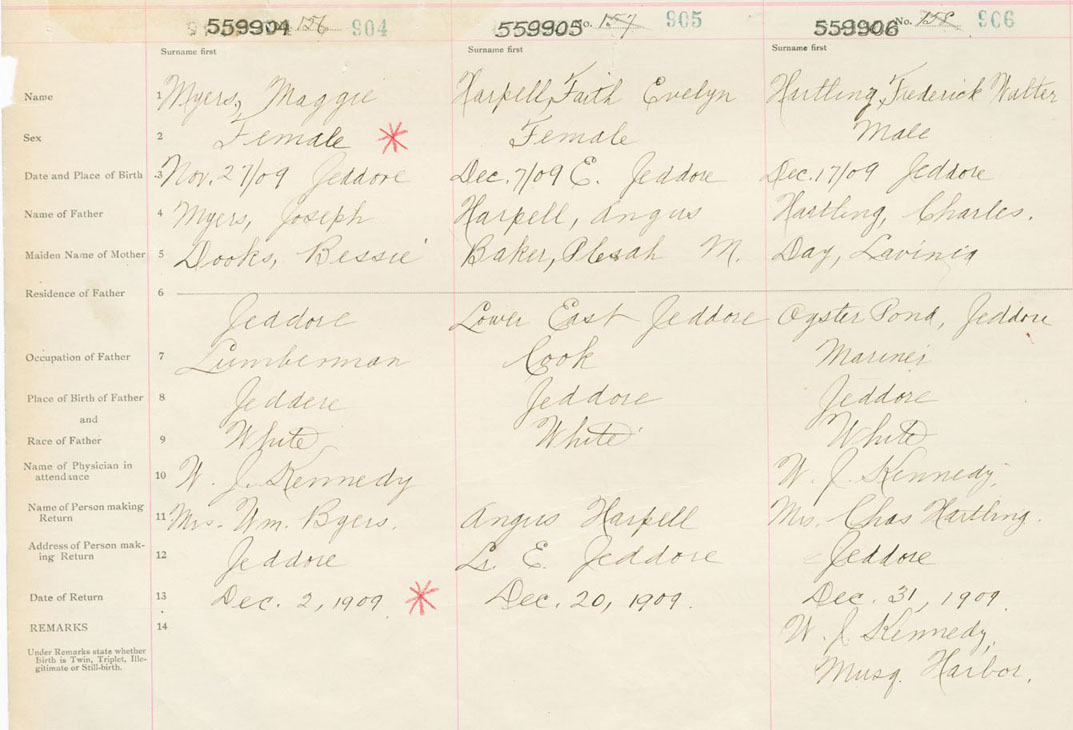 559904 156 904 559905 No. 157 905 559906 No. 158 906
Surname first Surname first Surname first
Name 1 Myers, Maggie Harpell, Faith Evelyn Hartling, Frederick Walter
Sex 2 Female Female Male
Date and Place of Birth 3 Nov. 27/09 Jeddore Dec. 7/09 E. Jeddore Dec. 17/09 Jeddore
Name of Father 4 Myers, Joseph Harpell, Angus Hartling, Charles.
Maiden Name of Mother 5 Dooks, Bessie Baker, M. Day, Lavinia
Residence of Father 6
Jeddore Lower East Jeddore Oyster Pond, Jeddore
Occupation of Father 7 Lumberman Cook Mariner
Place of Birth of Father 8 Jeddore Jeddore Jeddore
and
Race of Father 9 White White White
Name of Physician in
attendance 10 W. J. Kennedy W. J. Kennedy,
Name of Person making
Return 11 Mrs. Wm. Byers. Angus Harpell Mrs. Chas Hartling.
Address of Person mak-
ing Return 12 Jeddore Lr. E. Jeddore Jeddore
Date of Return 13 Dec. 2, 1909 Dec. 20, 1909. Dec. 31, 1909.
REMARKS 14 W. J. Kennedy,
Under Remarks state whether
Birth is Twin, Triplet, Ille-
gitimate or Still-birth.
Musq. Harbor.